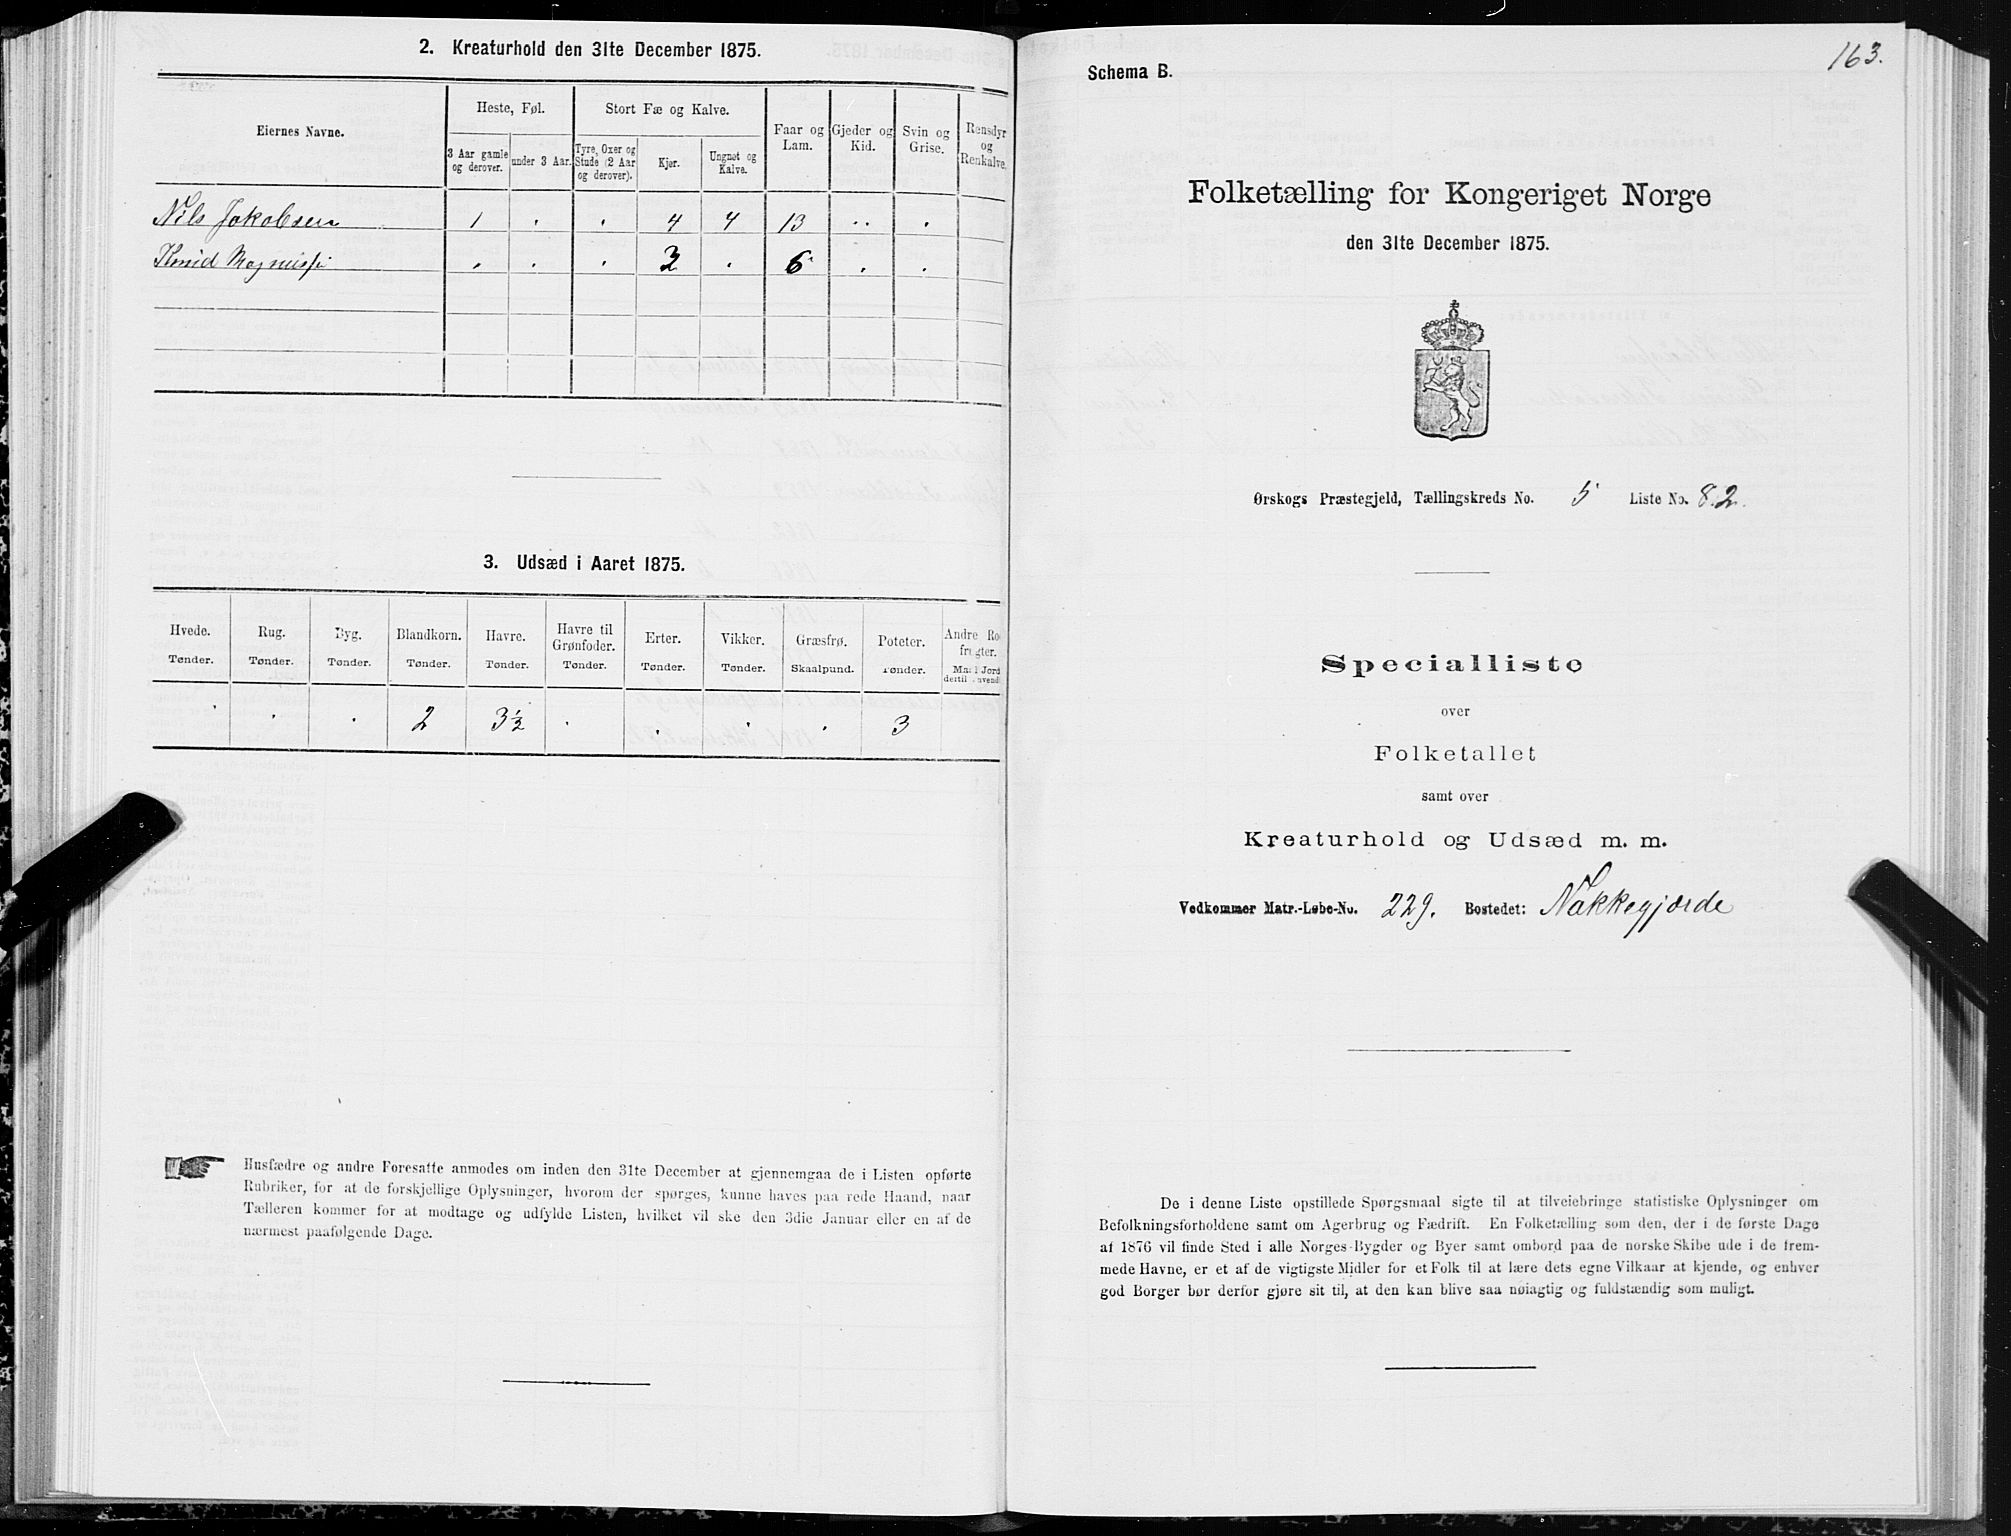 2. Kreaturhold den 31te December 1875.
Eiernes Navne.
Heste, Føl.
Stort Fæ og Kalve.
Faar og Lam.
Gjeder og Kid.
Svin og Grise.
Rensdyr og Renkalve.
3 Aar gamle og derover.
under 3 Aar.
Tyre, Oxer og Stude (2 Aar og derover).
Kjør.
Ungnøt og Kalve.
Nils Jakobsen 1 . . 4 4 13 .. .
Knud . . . . 6 . .
3. Udsæd i Aaret 1875.
Hvede. Rug. Byg. Blandkorn. Havre. Havre til Grønfoder. Erter. Vikker. Græsfrø. Poteter. Andre Ro
frugter.
Tønder. Tønder. Tønder. Tønder. Tønder. Tønder. Tønder. Tønder. Skaalpund. Tønder.
. . . 2 3½ . . . . 3
Husfædre og andre Foresatte anmodes om inden den 31te December at gjennemgaa de i Listen opførte
Rubriker, for at de forskjellige Oplysninger, hvorom der spørges, kunne haves paa rede Haand, naar
Tælleren kommer for at modtage og udfylde Listen, hvilket vil ske den 3die Januar eller en af de
nærmest paafølgende Dage.
163.
Schema B.
Folketælling for Kongeriget Norge
den 31te December 1875.
Ørskogs Præstegjeld, Tællingskreds No. 5 Liste No. 82.
Specialliste
over
Folketallet
samt over
Kreaturhold og Udsæd m. m.
Vedkommer Matr.-Løbe-No. 229. Bostedet: Nakkegjærde
De i denne Liste opstillede Spørgsmaal sigte til at tilveiebringe statistiske Oplysninger om
Befolkningsforholdene samt om Agerbrug og Fædrift. En Folketælling som den, der i de første Dage
af 1876 vil finde Sted i alle Norges Bygder og Byer samt ombord paa de norske Skibe ude i de frem-
mede Havne, er et af de vigtigste Midler for et Folk til at lære dets egne Vilkaar at kjende, og enhver
god Borger bør derfor gjøre sit til, at den kan blive saa nøiagtig og fuldstændig som muligt.